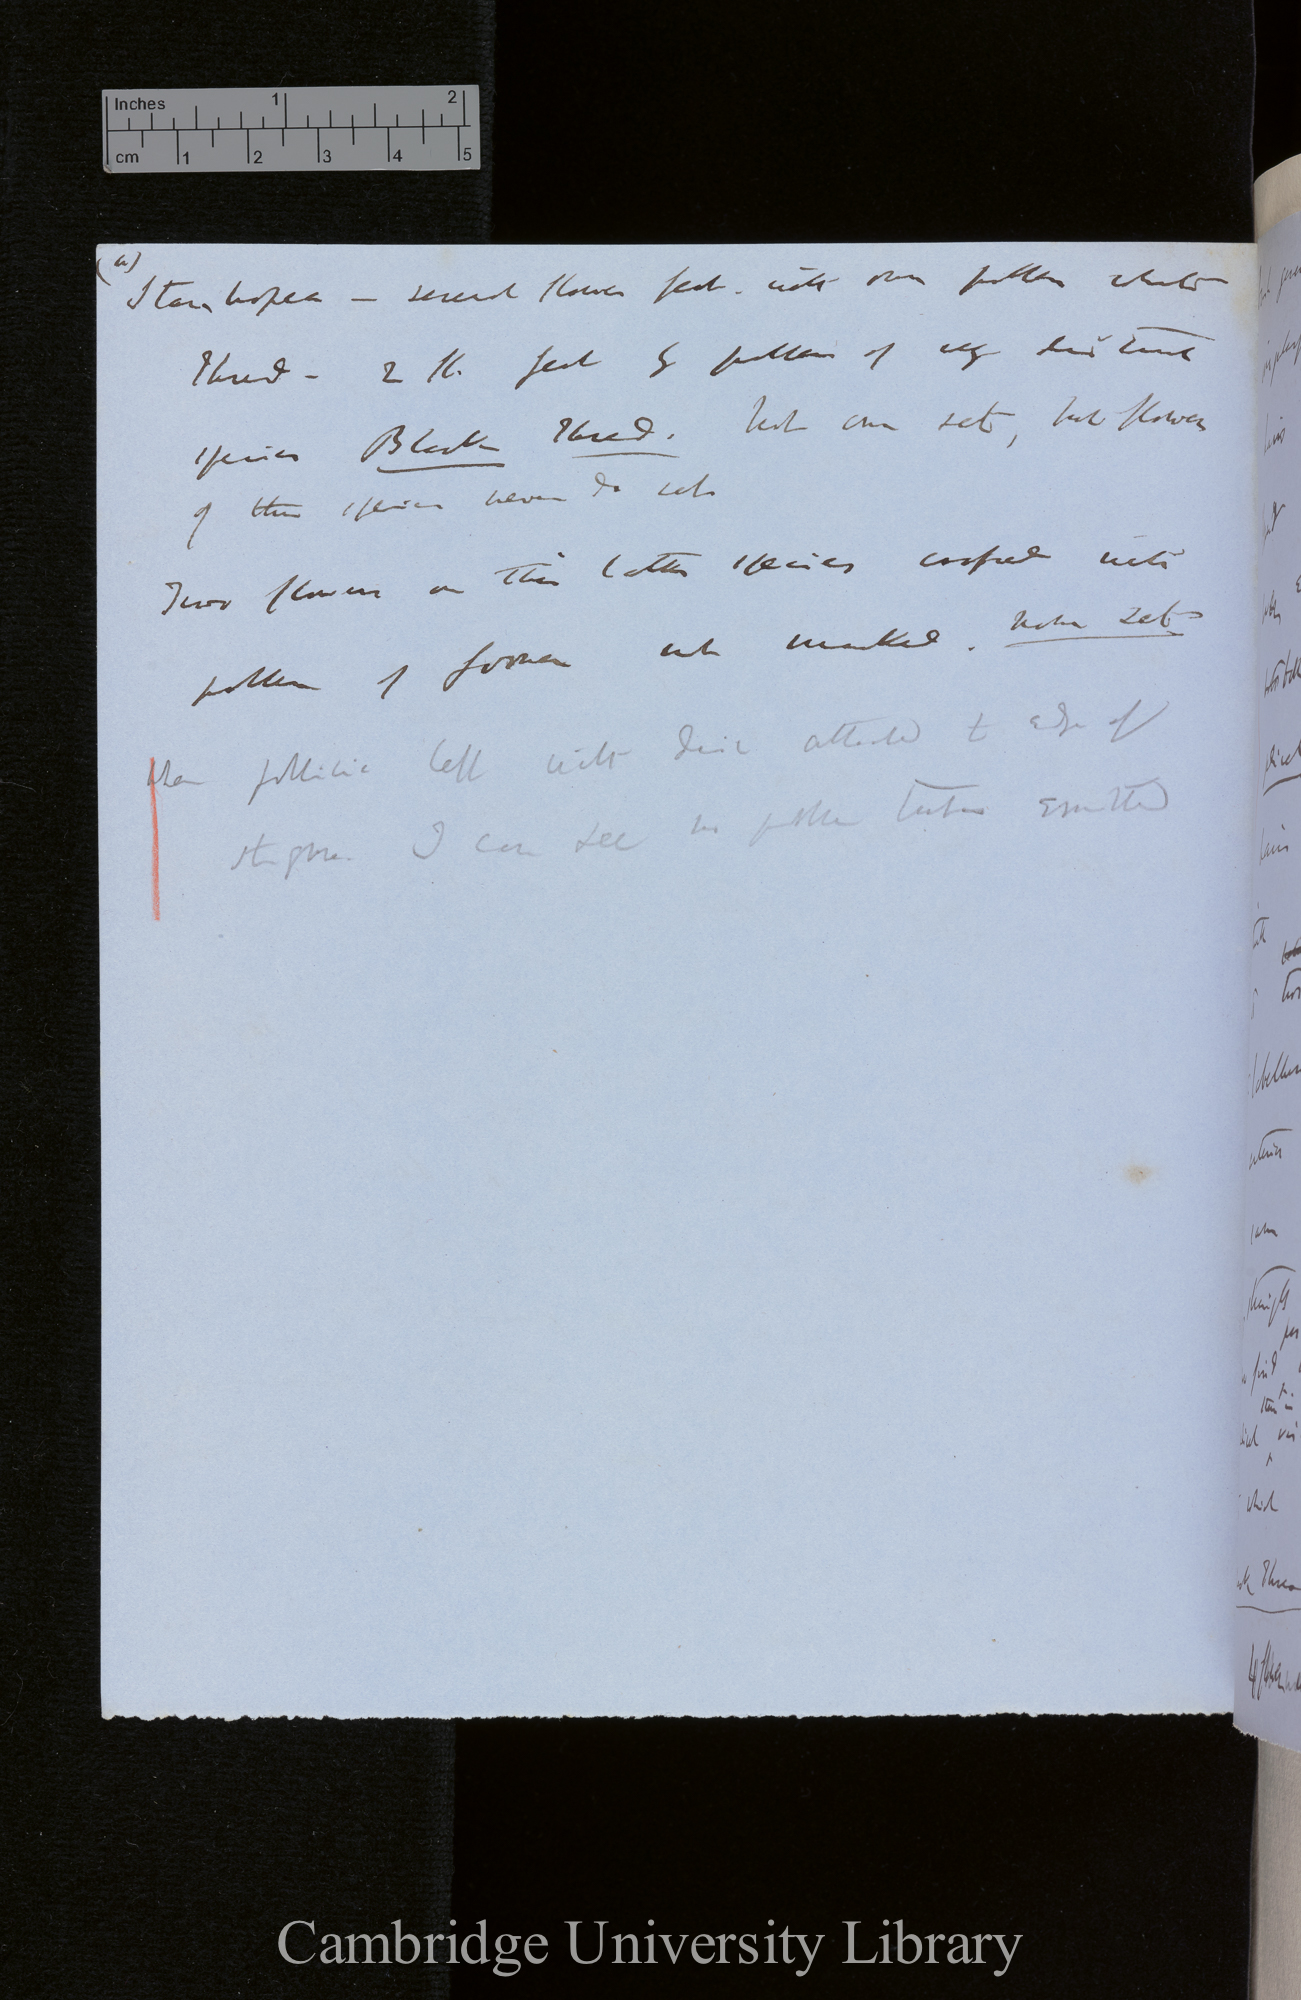 Inches 1 2
cm 1 2 3 4 5
(a)
Stanhopea — several flowers fert. with own pollen white
thread — 2 fl. fert by pollen of very distinct
species Black thread. Not one set, but flowers
of this species never do set
Two flowers on this latter species crossed with
pollen of former not marked. Neither set
When pollinia left with disc attached to edge of
stigma. I can see no pollen tubes emitted
Cambridge University Library